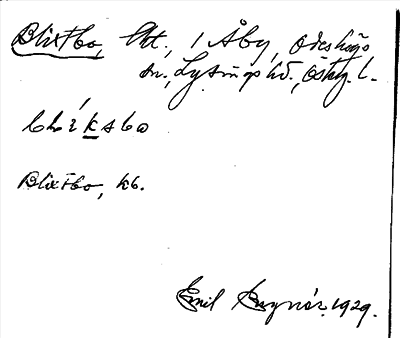 Blixtbo, tht., 1 Åby, Ödeshögs
sn., Lysings hd., Östg. l.
bliksbo
Blixtbo, kb.
Emil 1929.